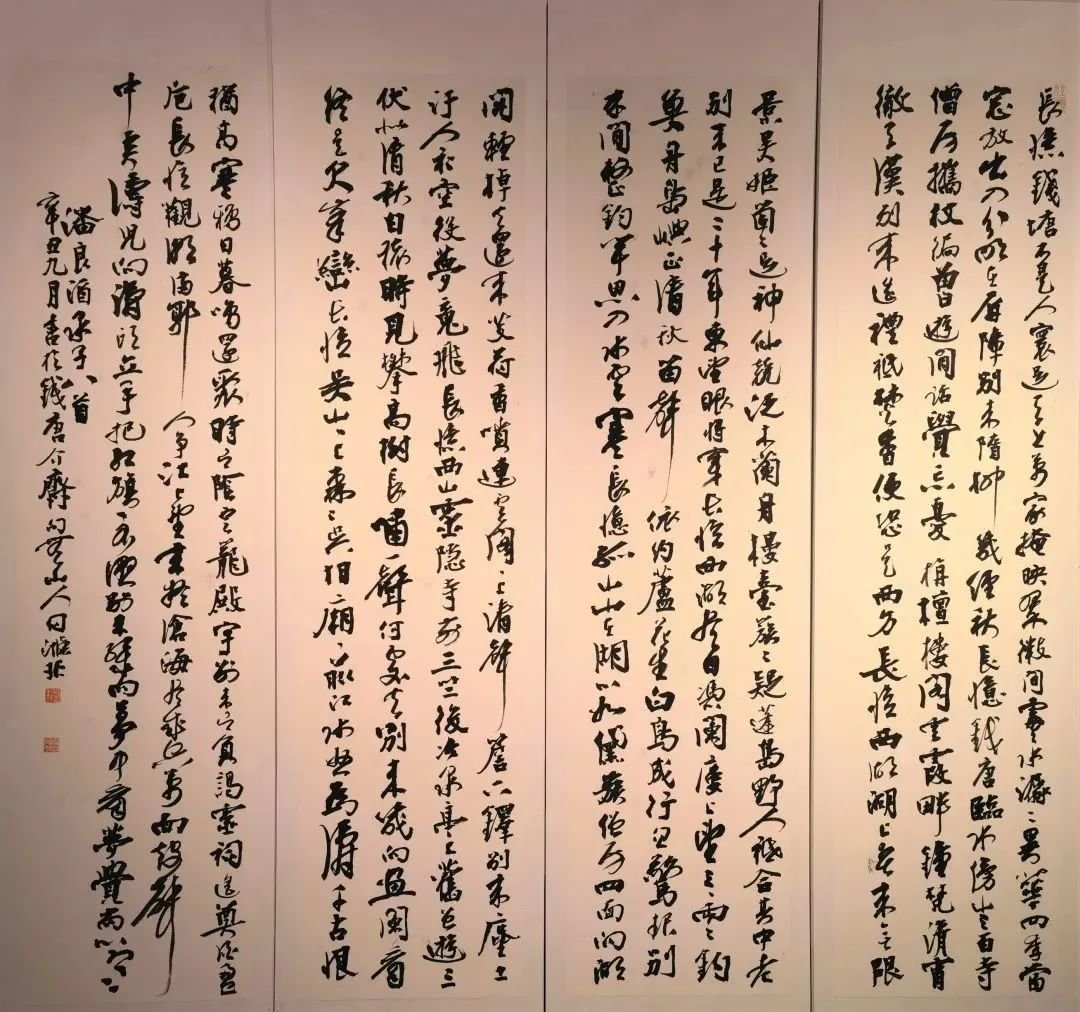 長憶錢塘不是人寰是天上萬家掩映翠微間處水潺〻異華四季當
窓放出入分明在屏障別來隋柳幾經秋長憶錢唐臨水傍山三百寺
僧房攜杖徧曾遊閒話覺忘憂栴檀樓閣雲霞畔鐘梵清宵
徹天漢別來遙禮祇焚香便恐是西方長憶西湖湖上春來無限
景吳姬箇〻是神仙競泛木蘭舟樓臺簇〻疑蓬島野人祇合其中老
別來已是二十年東望眼將穿長憶西湖盡日憑闌樓上望三〻兩〻釣
魚舟島嶼正清秋笛聲依約蘆花里白鳥成行忽驚起別
來閒整釣竿思入水雲寒長憶孤山山在湖心如黛簇僧房四面向湖
開輕棹去還來芰荷香噴連雲閣〻上清聲簷下鐸別來塵土
汙人衣空役夢魂飛長憶西山靈隱寺前三竺後冷泉亭上舊曾遊三
伏似清秋白猿時見攀高樹長嘯一聲何處去別來幾向畫闌看
終是欠峯巒長憶吳山〻上森〻吳相廟〻前江水怒為濤千古恨
猶高寒鴉日暮鳴還聚時有陰雲籠殿宇別來有負謁靈祠遙奠酒盈
巵長憶觀潮滿郭人爭江上望來疑滄海盡成空萬面鼓聲
中弄濤兒向濤頭立手把紅旗〻不溼別來幾向夢中看夢覺尚心寒
潘良酒泉子八首
辛丑九月書於錢唐介齋山人